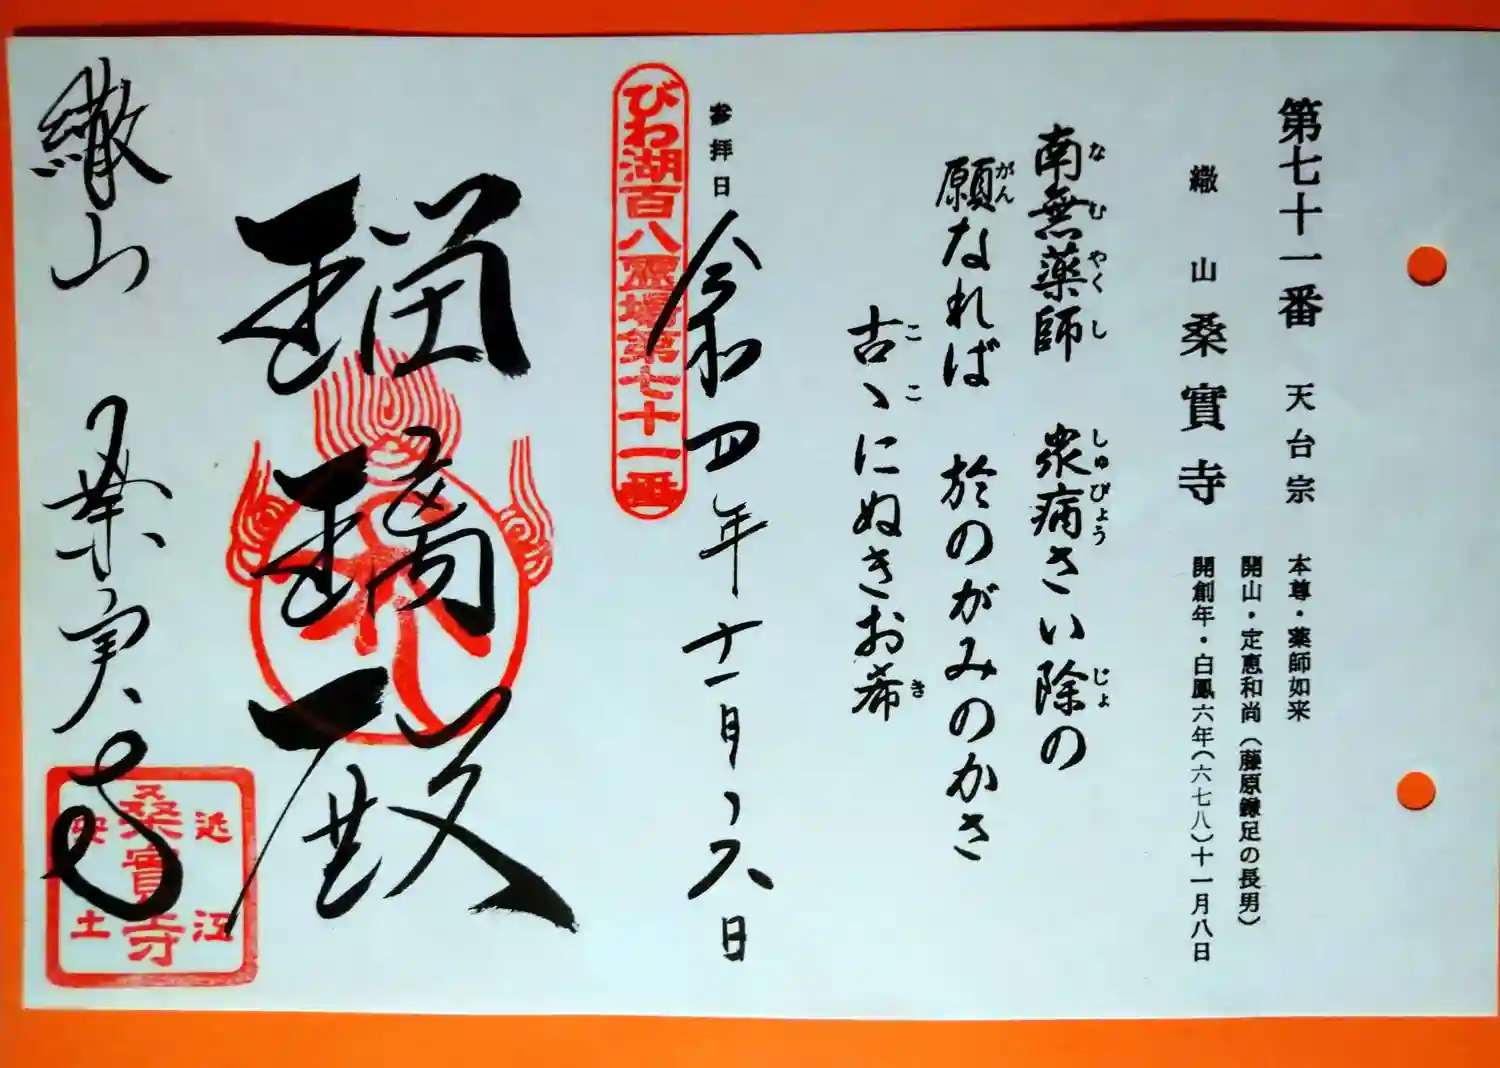 第七十一番 天台宗 本尊・薬師如来
開山・定恵和尚(藤原鎌足の長男)
繖山 桑實寺 開創年・白鳳六年(六七八)十一月八日
南無薬師 衆病さい除の
なむやくし しゅびょう じょ
願なれば 於のがみのかさ
がん
古ゝにぬきお希
ここ き
参拝日 令和四年十一月、六日
びわ湖百八霊場第七十一番
瑠璃殿
繖山 桑実寺
近江
桑實寺
安土